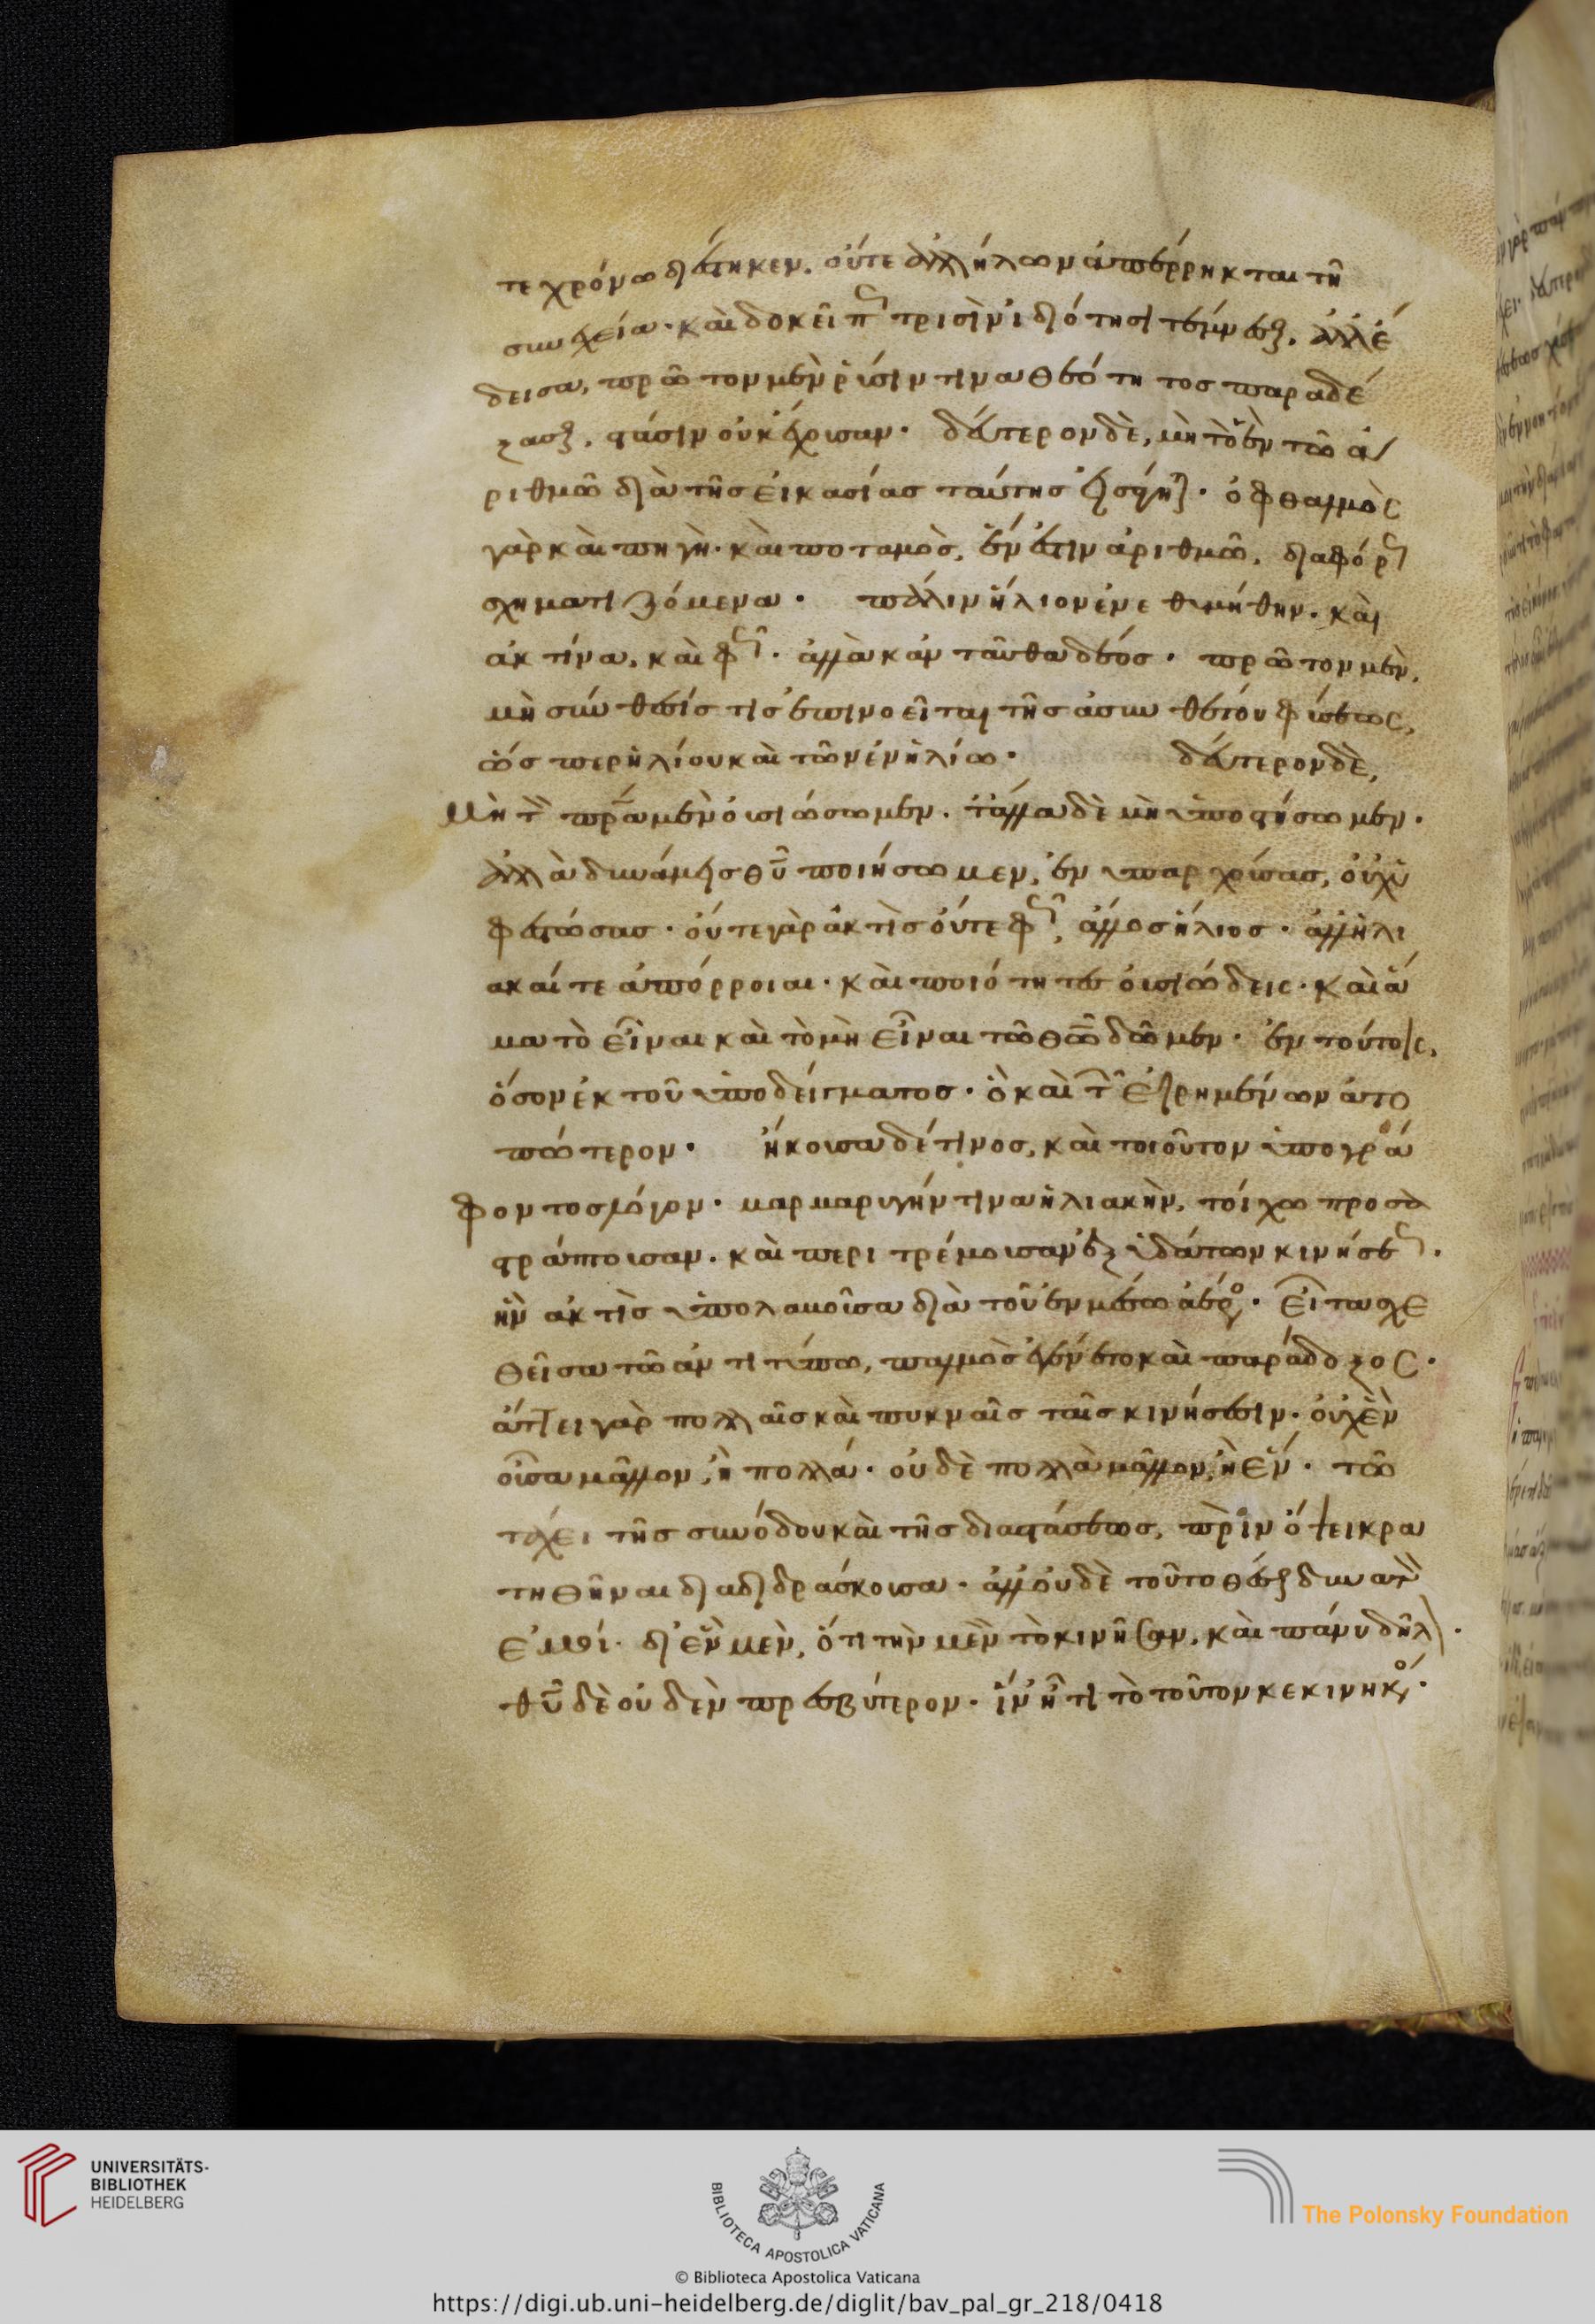 τε χρόνω διέστηκεν. οὔτε ἀλλήλων ἀπέρρηκται τῆ
συνεχεία· καὶ δοκεῖ πως τρισὶν ἰδιότησι τέμνεσθαι. ἀλλ' ἔ
δεισα, πρῶτον μὲν ῥύσιν τινα θεότητος παραδέ
ξασθαι, στάσιν οὐκ ἔχουσαν· δεύτερον δὲ, μὴ τὸ ἓν τῶ ἀ
ριθμῶ διὰ τῆς εἰκασίας ταύτης εἰσάγηται· ὀφθαλμὸς
γὰρ καὶ πηγὴ· καὶ ποταμὸς, ἕν ἐστιν ἀριθμῶ, διαφόρως
σχηματιζόμενα· πάλιν ἥλιον ἐνεθυμήθην. καὶ
ἀκτίνα, καὶ φῶς· ἀλλὰ κἀνταῦθα δέος· πρῶτον μὲν,
μὴ σύνθεσίς τις ἐπινοεῖται τῆς ἀσυνθέτου φύσεως,
ὥσπερ ἡλίου καὶ τῶν ἐν ἡλίω· δεύτερον δὲ,
μὴ τὸν πρα μὲν οὐσιώσωμεν. τἄλλα δὲ μὴ ὑποστήσωμεν·
ἀλλὰ δυνάμεις θῦ ποιήσωμεν, ἐν ὑπαρχούσας, οὐχ ὑ
φεστώσας· οὔτε γὰρ ἀκτὶς οὔτε φῶς, ἄλλος ἥλιος· ἀλλ' ἡλι
ακαί τε ἀπόρροιαι· καὶ ποιότητες οὐσιώδεις· καὶ ἅ
μα τὸ εἶναι καὶ τὸ μὴ εἶναι τῶ θῶ δῶμεν· ἐν τούτοις,
ὅσον ἐκ τοῦ ὑποδείγματος· ὃ καὶ τῶν εἰρημένων ἀτο
πώτερον· ἤκουσα δέ τινος, καὶ τοιοῦτον ὑπογρά
φοντος λόγον· μαρμαρυγήν τινα ἡλιακὴν, τοίχω προσα
στράπτουσαν. καὶ περιτρέμουσαν ἐξ ὑδάτων κινήσεως·
ἣν ἀκτὶς ὑπολαβοῦσα διὰ τοῦ ἐν μέσω ἀέρος· εἶτα σχε
θεῖσα τῶ ἀντιτύπω, παλμὸς ἐγένετο καὶ παράδοξος·
ἄττει γὰρ πολλαῖς καὶ πυκναῖς ταῖς κινήσεσιν· οὐχ ἓν
οὖσα μᾶλλον, ἢ πολλά· οὐδὲ πολλὰ μᾶλλον, ἢ ἕν· τῶ
τάχει τῆς συνόδου καὶ τῆς διαστάσεως, πρὶν ὄψει κρα
τηθῆναι διαδιδράσκουσα· ἀλλ' οὐδὲ τοῦτο θέσθαι δυνατὸν
ἐμοί· δι' ἓν μὲν, ὅτι τὴν μὲν τὸ κινῆσαν, καὶ πάνυ δῆλον·
θῦ δὲ οὐδὲν πρεσβύτερον· ἵν' ἦ τι τὸ τοῦτον κεκινηκός·
UNIVERSITÄTS-
BIBLIOTHEK
HEIDELBERG
BIBLIOTECA APOSTOLICA VATICANA
The Polonsky Foundation
© Biblioteca Apostolica Vaticana
https://digi.ub.uni-heidelberg.de/diglit/bav_pal_gr_218/0418